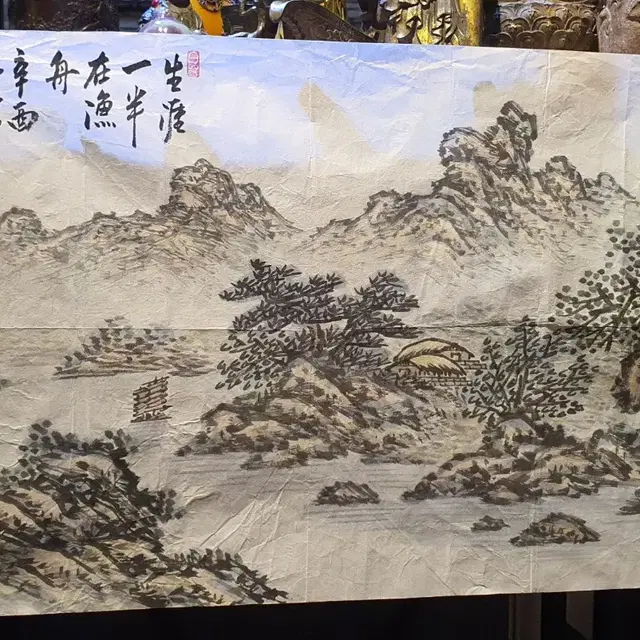 生涯
一半
在漁
舟
辛酉